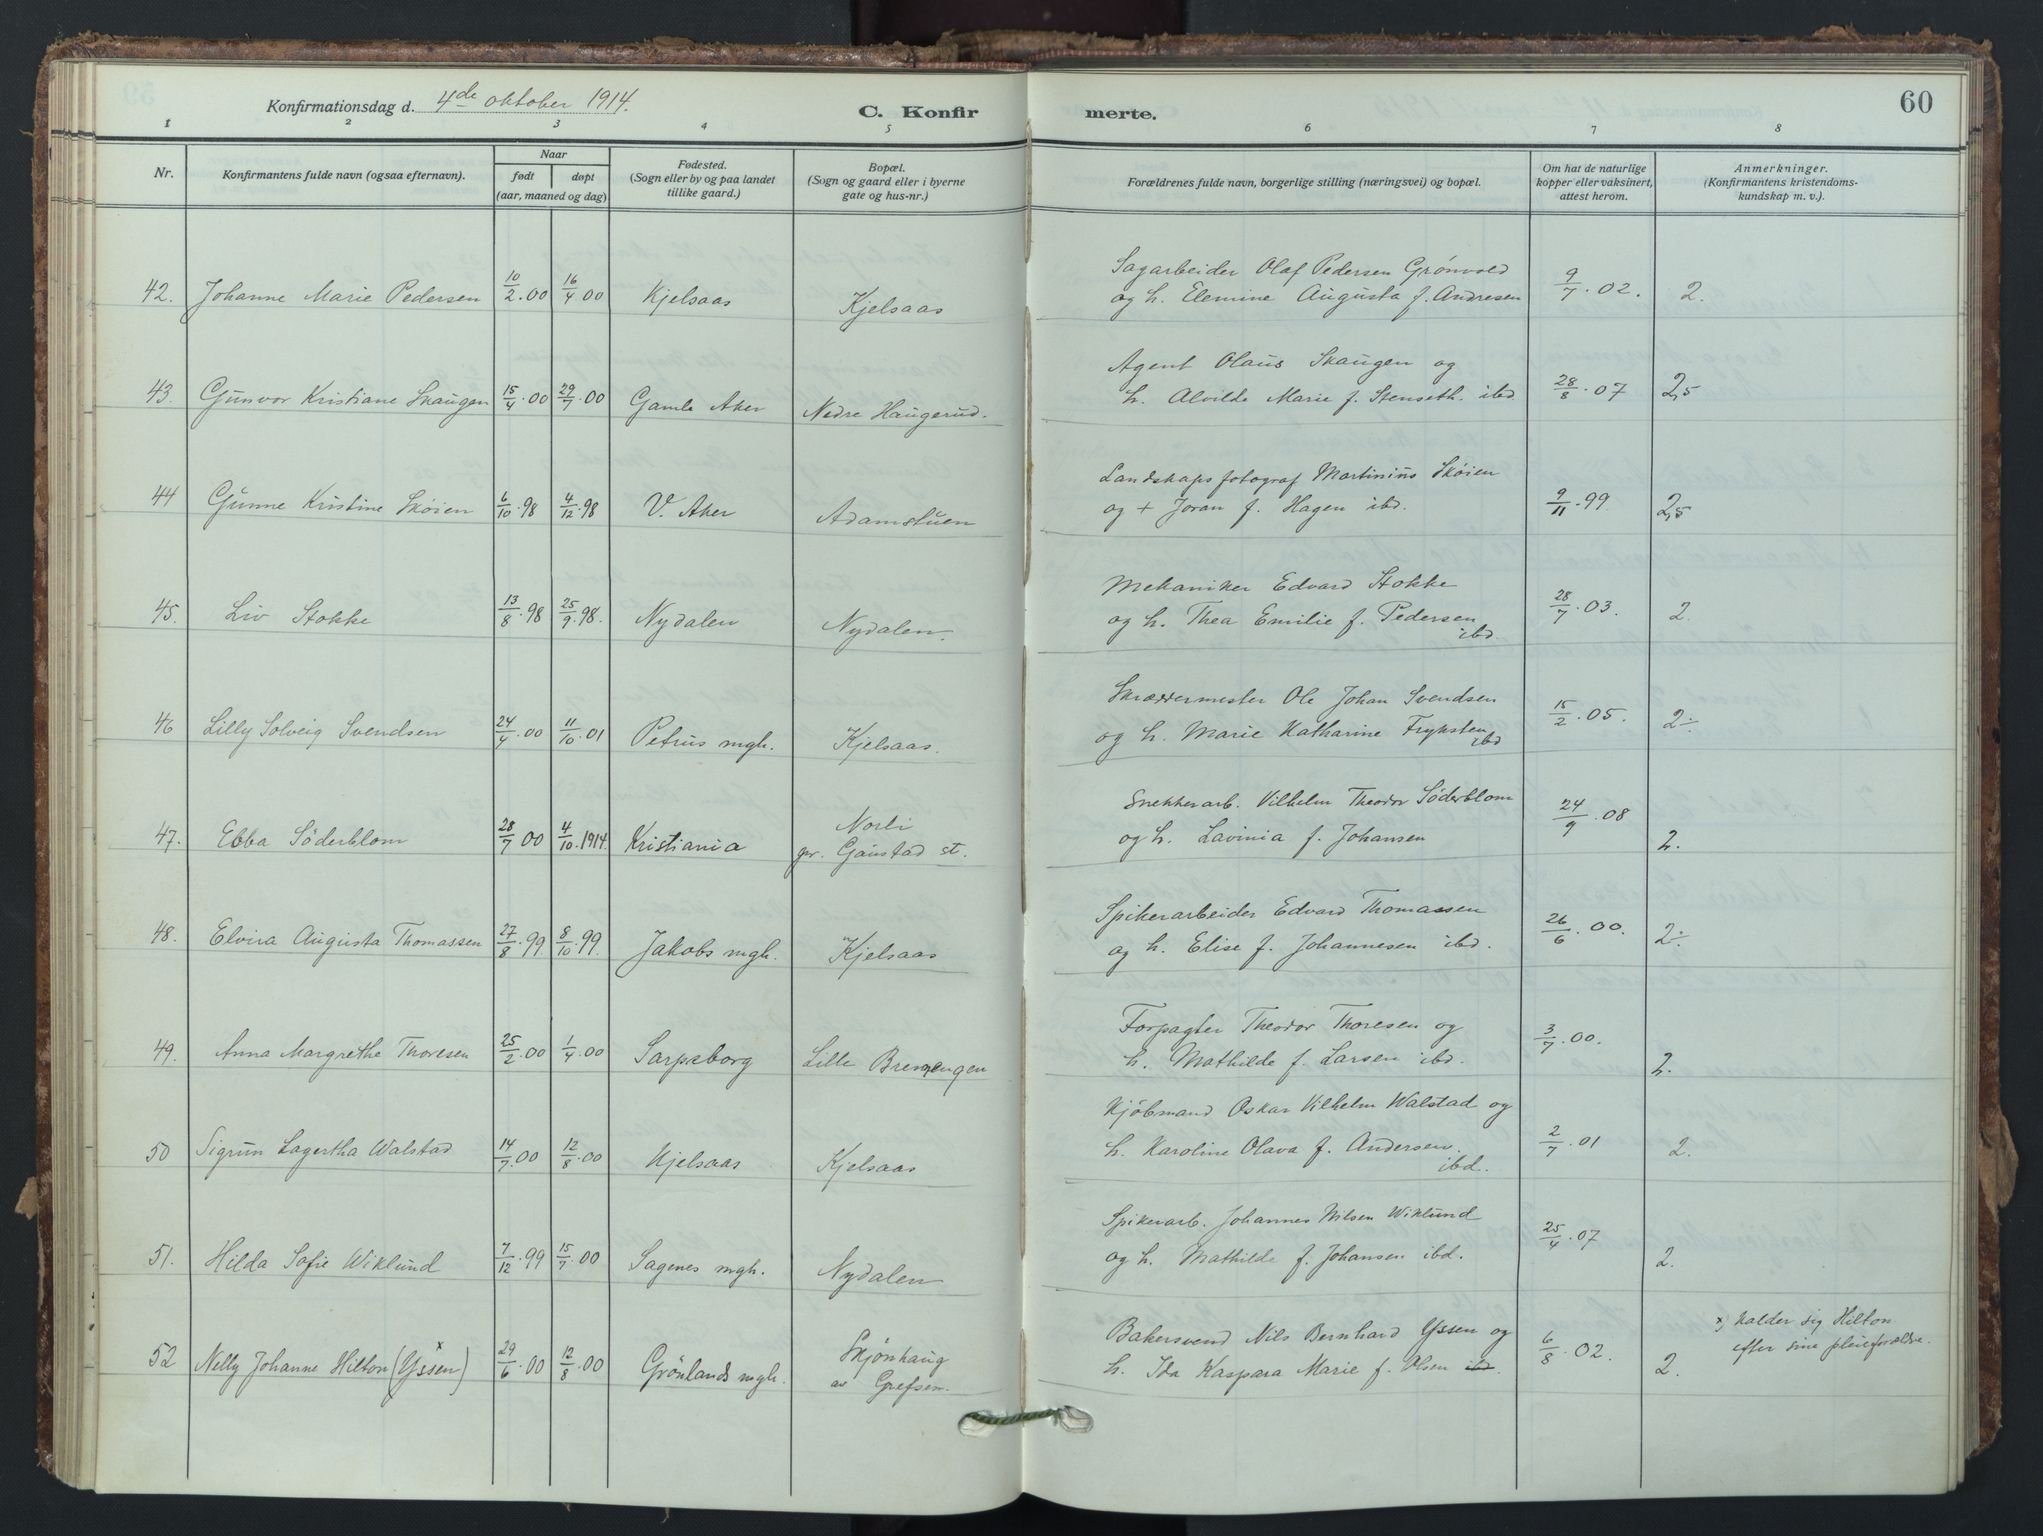 Konfirmationsdag d. 4de oktober 1914.
C. Konfirmerte.
60
1 2 3 4 5 6 7 8
Nr.
Konfirmantens fulde navn (ogsaa efternavn).
Naar
født
døpt
(aar, maaned og dag)
Fødested.
(Sogn eller by og paa landet
tillike gaard.)
Bopæl.
(Sogn og gaard eller i byerne
gate og hus-nr.)
Forældrenes fulde navn, borgerlige stilling (næringsvei) og bopæl.
Om hat de naturlige
kopper eller vaksinert,
attest herom.
Anmerkninger.
(Konfirmantens kristendoms-
kundskap m. v.).
42. Johanne Marie Pedersen 10/2.00 16/4 00 Kjelsaas Kjelsaas
Sagarbeider Olaf Pedersen Grönvold
og h. Elemine Augusta f. Andresen 9/7.02. 2.
43. Gunvor Kristiane Skaugen 15/4.00 29/7.00 Gamle Aker Nedre Haugerud.
Agent Olaus Skaugen og
h. Alvilde Marie f. Stenseth. ibd. 28/8.07 2,5
44 Gunne Kristine Skoien 6/10.98 4/12.98 V. Aker Adamstuen
Landskapsfotograf Martinius Skoien
og + Joran f. Hagen ibd. 9/11.99. 2,5
45. Liv Stokke 13/8.98 25/9.98. Nydalen Nydalen.
Mekaniker Edvard Stokke
og h. Thea Emilie f. Pedersen
ibd. 28/7.03. 2.
46 Lilly Solveig Svendsen 24/4.00 11/10.01 Petrus mgh. Kjelsaas.
Skræddermester Ole Johan Svendsen
og h. Marie Katharine Fryksten
ibd 15/2.05. 2÷
47. Ebba Söderblom 28/7 00 4/10.1914. Kristiania Norli
pr. Gaustad st.
Snekkerarb. Vilhelm Theodor Söderblom
og h. Lavinia f. Johansen 24/9.08 2.
48. Elvira Augusta Thomassen 27/8.99 8/10.99. Jakobs mgh. Kjelsaas
Spikerarbeider Edvard Thomassen
og h. Elise f. Johannesen ibd. 26/6.00. 2÷
49. Anna Margrethe Thoresen 25/2.00 1/4.00 Sarpsborg Lille Brenengen
Forpagter Theodor Thoresen og
h. Mathilde f. Larsen ibd. 3/7.00. 2.
50 Sigrun Lagertha Walstad 14/7.00 12/8.00 Kjelsaas Kjelsaas
Kjöbmand Oskar Vilhelm Walstad og
h. Karoline Olava f. Andersen.
ibd. 2/7.01 2.
51. Hilda Sofie Wiklund 7/12.99 15/7.00 Sagenes mgh. Nydalen
Spikerarb. Johannes Nilsen Wiklund
og h. Mathilde f. Johansen ibd. 25/4.07 2.
52 Nelly Johanne Hilton (Yssen)x 29/6.00 12/8.00 Grönlands mgh. Skjönhaug
av Grefsen.
Bakersvend Nils Bernhard Yssen og
h. Ida Kaspara Marie f. Olsen ibd. 6/8.02. 2.
x, kalder sig Hilton
efter sine pleieforældre.